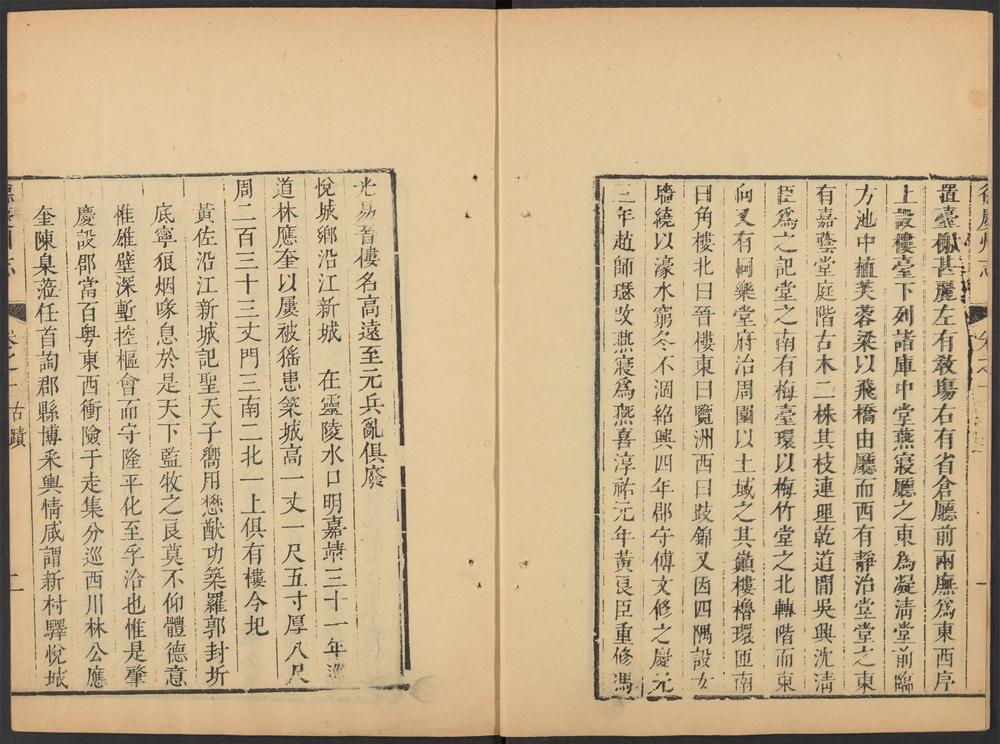 置臺榭甚麗左有教塲右有省倉廳前兩廡為東西序
上設樓臺下列諸庫中堂燕寢廳之東為凝淸堂前臨
方池中植芙蓉梁以飛橋由廳而西有靜治堂堂之東
有嘉蔭堂庭階古木二株其枝連理乾道間吳興沈淸
臣爲之記堂之南有梅臺環以梅竹堂之北轉階而東
向又有同樂堂府治周圍以土城之其巔樓櫓環匝南
曰角樓北曰晉樓東曰覽洲西曰歧錦又因四隅設女
墻繞以濠水窮冬不涸紹興四年郡守傅文修之慶元
三年趙師瑟改燕寢爲燕喜淳祐元年黃良臣重修馮
光易晉樓名高遠至元兵亂俱廢
悅城鄉沿江新城　在靈陵水口明嘉靖三十一年巡
道林應奎以屢被猺患築城高一丈一尺五寸厚八尺
周二百三十三丈門三南二北一上俱有樓今圮
黃佐沿江新城記聖天子嚮用懋猷功築羅郭封圻
底寧狼烟喙息於是天下監牧之良莫不仰體德意
惟雄壁深塹控樞會而守隆平化至孚洽也惟是肇
慶設郡當百粵東西衝險于走集分巡西川林公應
奎陳臬蒞任首詢郡縣博采輿情咸謂新村驛悅城
德慶州志
卷之
古蹟
二